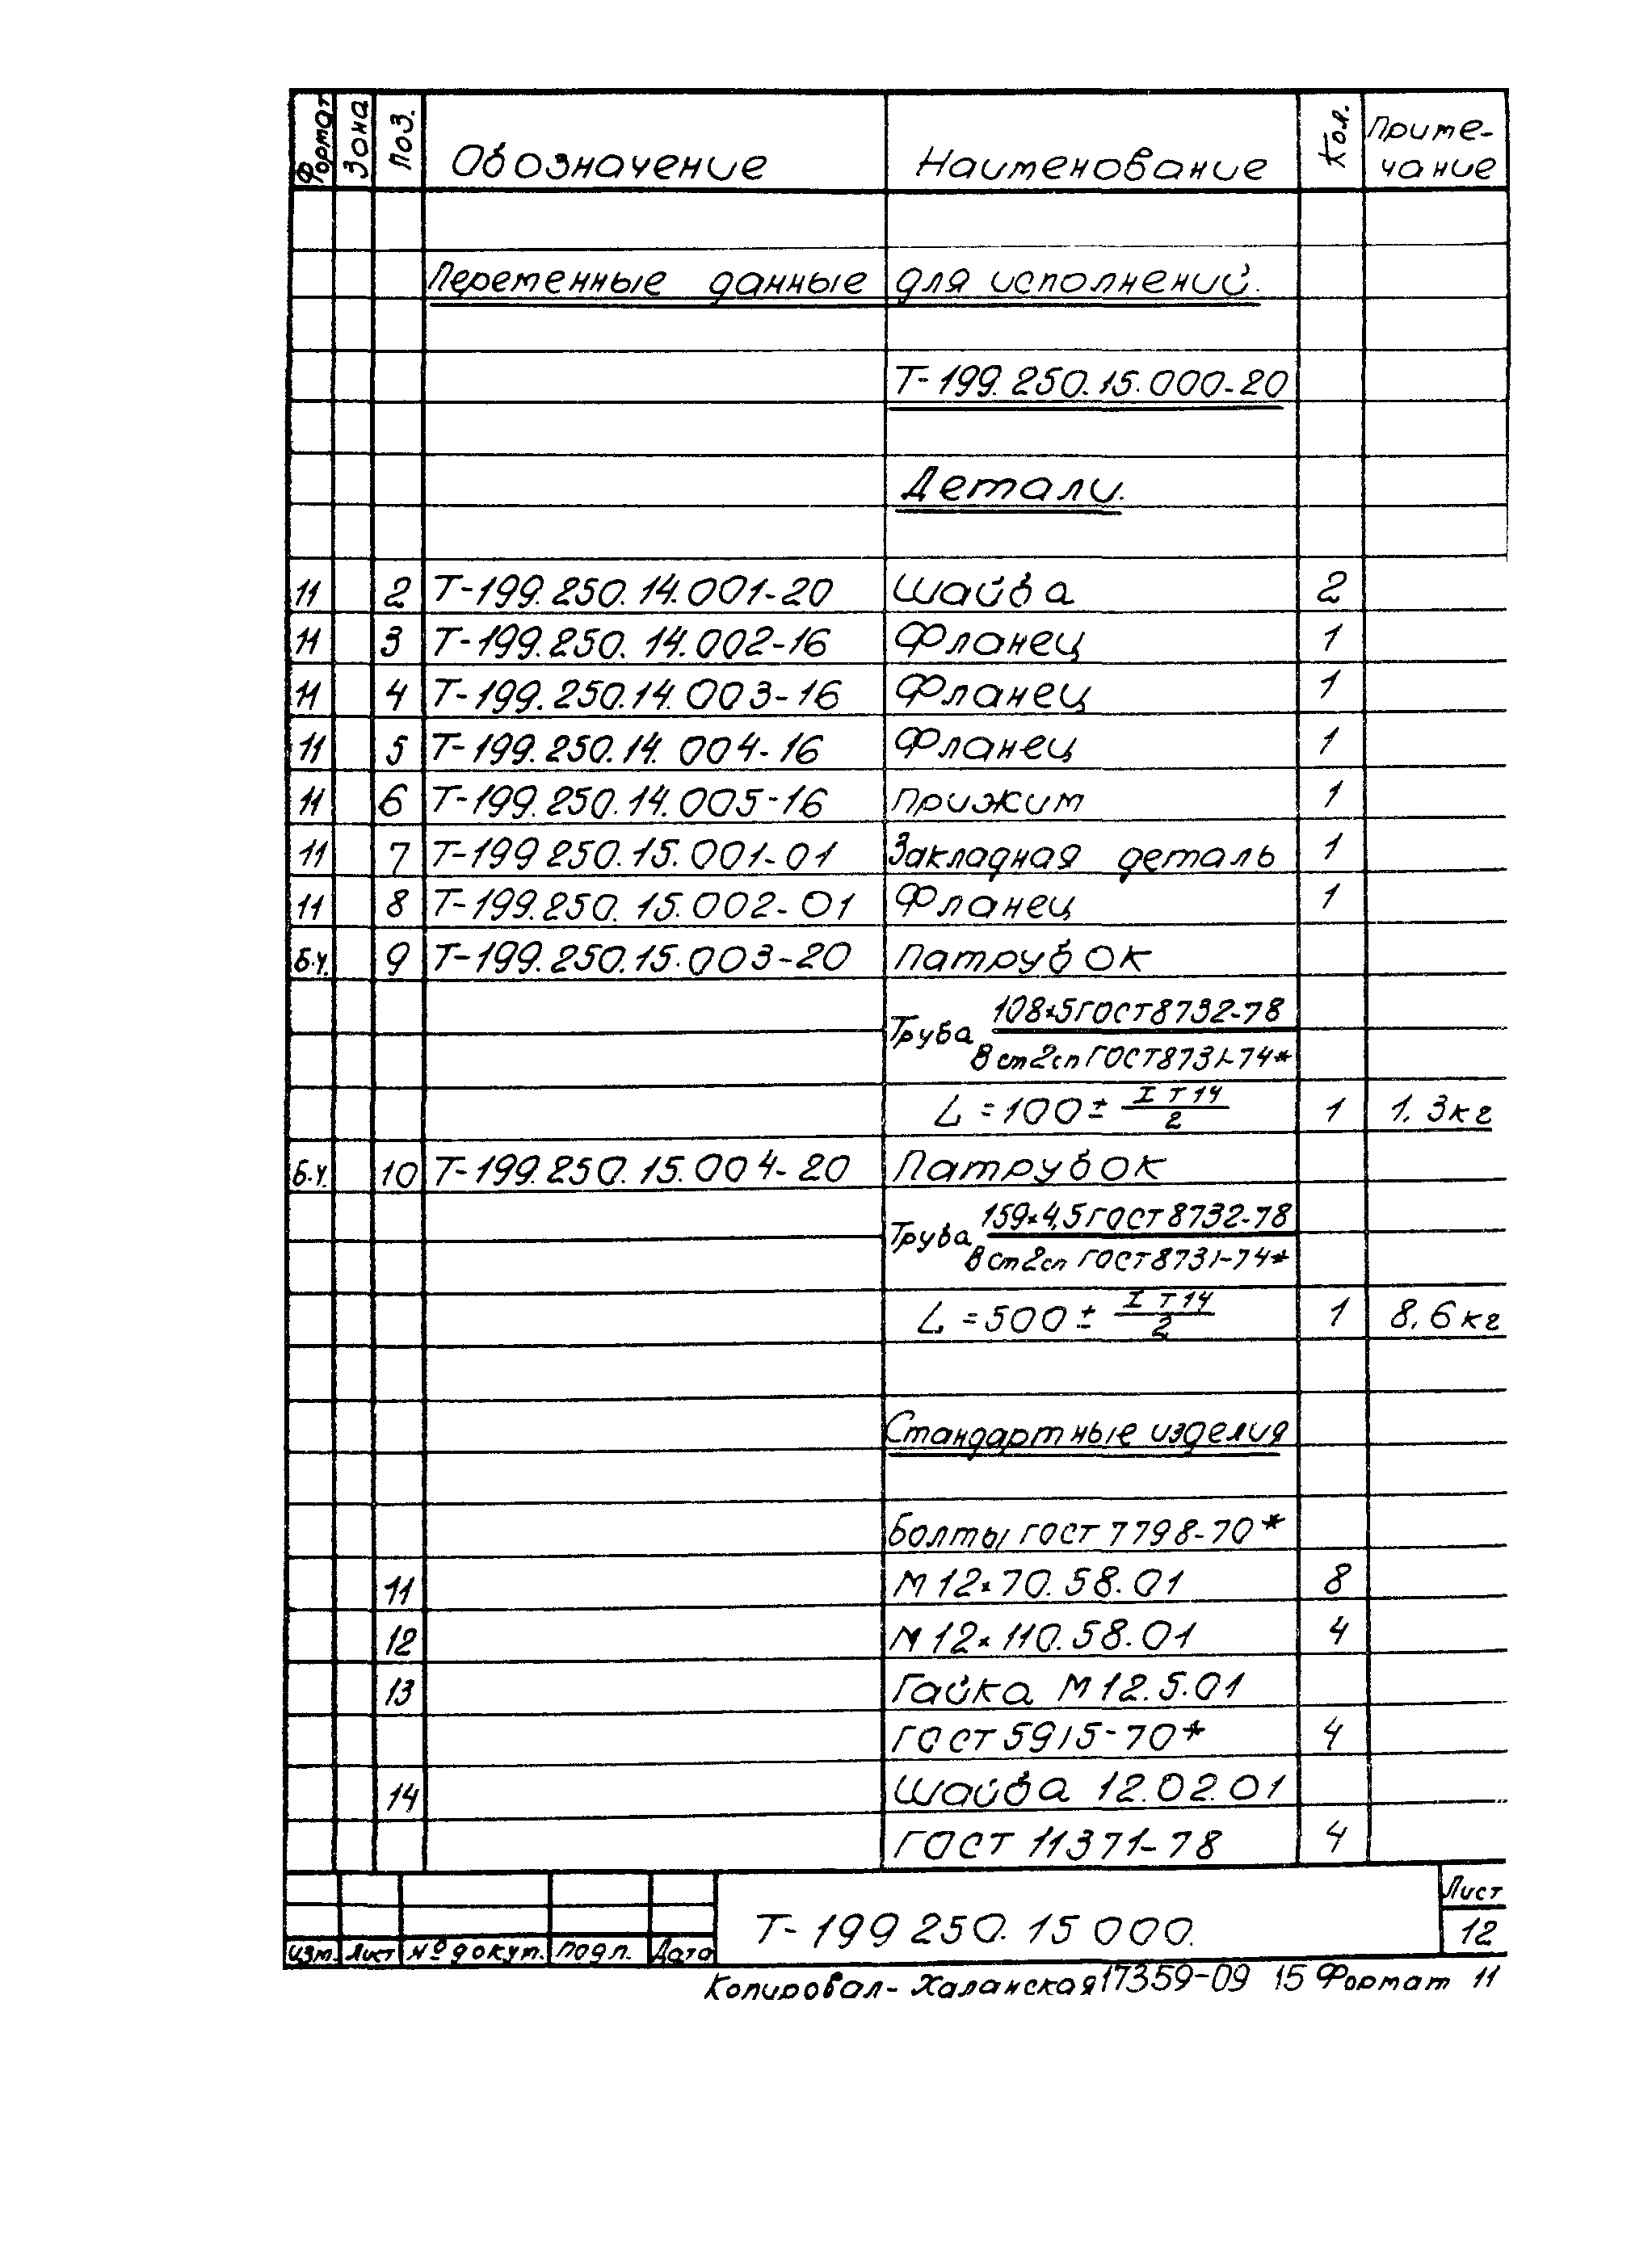 Формат Зона Поз. Обозначение Наименование Кол. Приме-
чание
Переменные данные для исполнений.
Т-199.250.15.000-20
Детали.
11 2 Т-199.250.14.001-20 Шайба 2
11 3 Т-199.250.14.002-16 Фланец 1
11 4 Т-199.250.14.003-16 Фланец 1
11 5 Т-199.250.14.004-16 Фланец 1
11 6 Т-199.250.14.005-16 Прижим 1
11 7 Т-199 250.15.001-01 Закладная деталь 1
11 8 Т-199.250.15.002-01 Фланец 1
б.ч. 9 Т-199.250.15.003-20 Патрубок
108×5 ГОСТ 8732-78
Труба
В ст2сп ГОСТ 8731-74*
L = 100 ± IT14/2 1 1.3кг
б.ч. 10 Т-199.250.15.004-20 Патрубок
159×4,5 ГОСТ 8732-78
Труба
В ст2сп ГОСТ 8731-74*
L = 500 ± IT14/2 1 8,6кг
Стандартные изделия
Болты ГОСТ 7798-70*
11 М12×70.58.01 8
12 М12×110.58.01 4
13 Гайка М12.5.01
ГОСТ 5915-70* 4
14 Шайба 12.02.01
ГОСТ 11371-78 4
Лист
Т-199 250.15 000. 12
Изм. Лист № докум. Подп. Дата
Копировал- Халанская 17359-09 15 Формат 11